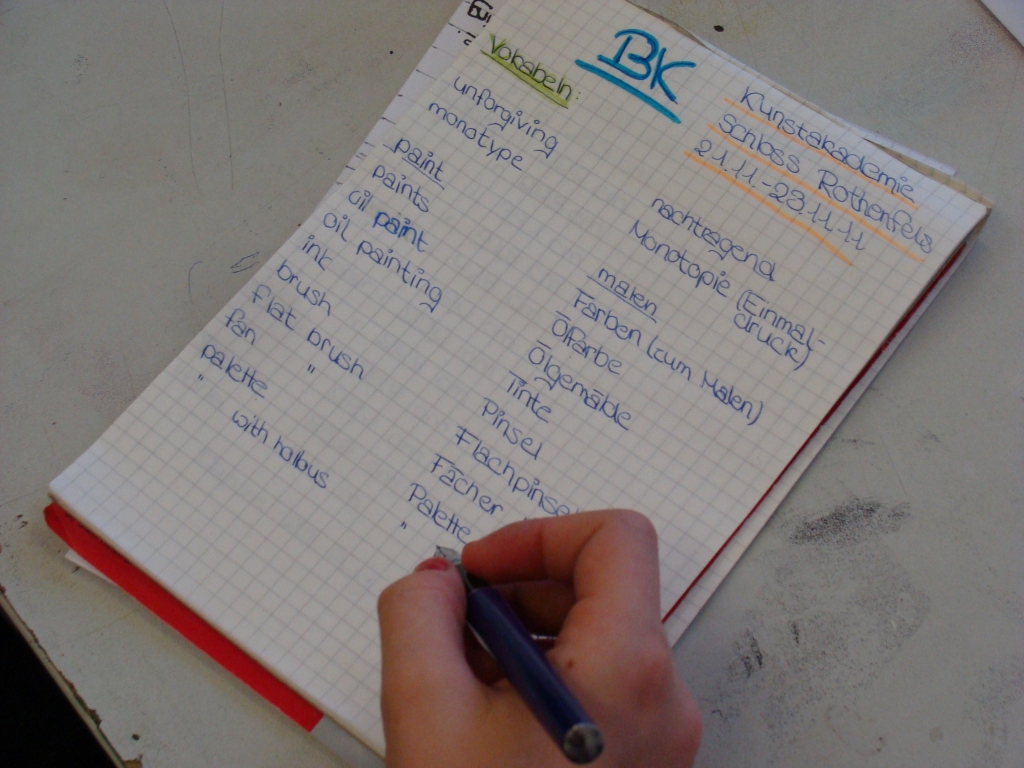 BK
Kunstakademie
Schloss Rothenfels
21.11.-23.11.11
Vokabeln:
unforgiving nachtragend
monotype Monotopie (Einmal-
druck)
paint malen
paints Farben (zum Malen)
oil paint Ölfarbe
oil painting Ölgemälde
ink Tinte
brush Pinsel
flat brush Flachpinsel
fan " Fächer
palette Palette
" with halbus "